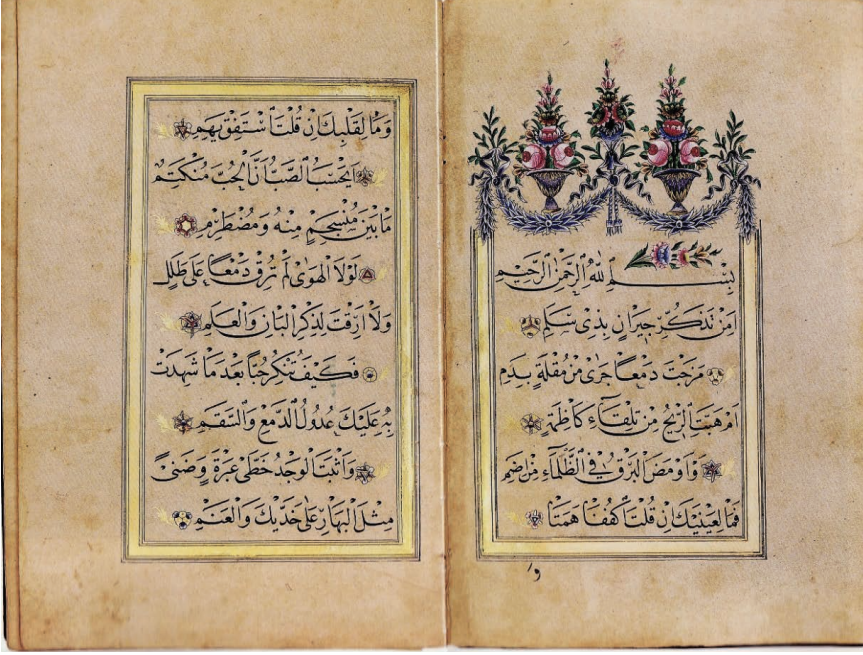 بِسْمِ اللهِ الرَّحْمٰنِ الرَّحِيمِ
اَمِنْ تَذَكُّرِ جِيرَانٍ بِذِى سَلَمِ
مَزَجْتَ دَمْعاً جَرٰى مِنْ مُقْلَةٍ بِدَمِ
اَمْ هَبَّتِ الرِّيحُ مِنْ تِلْقَاءِ كَاظِمَةٍ
وَاَوْمَضَ الْبَرْقُ فِى الظَّلْمَاءِ مِنْ اِضَمِ
فَمَا لِعَيْنَيْكَ اِنْ قُلْتَ اكْفُفَا هَمَتَا
و
وَمَا لِقَلْبِكَ اِنْ قُلْتَ اسْتَفِقْ يَهِمِ
اَيَحْسَبُ الصَّبُّ اَنَّ الْحُبَّ مُنْكَتِمٌ
مَا بَيْنَ مُنْسَجِمٍ مِنْهُ وَمُضْطَرِمِ
لَوْلَا الْهَوٰى لَمْ تُرِقْ دَمْعاً عَلٰى طَلَلٍ
وَلَا اَرِقْتَ لِذِكْرِ الْبَانِ وَالْعَلَمِ
فَكَيْفَ تُنْكِرُ حُبّاً بَعْدَ مَا شَهِدَتْ
بِهِ عَلَيْكَ عُدُولُ الدَّمْعِ وَالسَّقَمِ
وَاَثْبَتَ الْوَجْدُ خَطَّىْ عَبْرَةٍ وَضَنىً
مِثْلَ الْبَهَارِ عَلٰى خَدَّيْكَ وَالْعَنَمِ